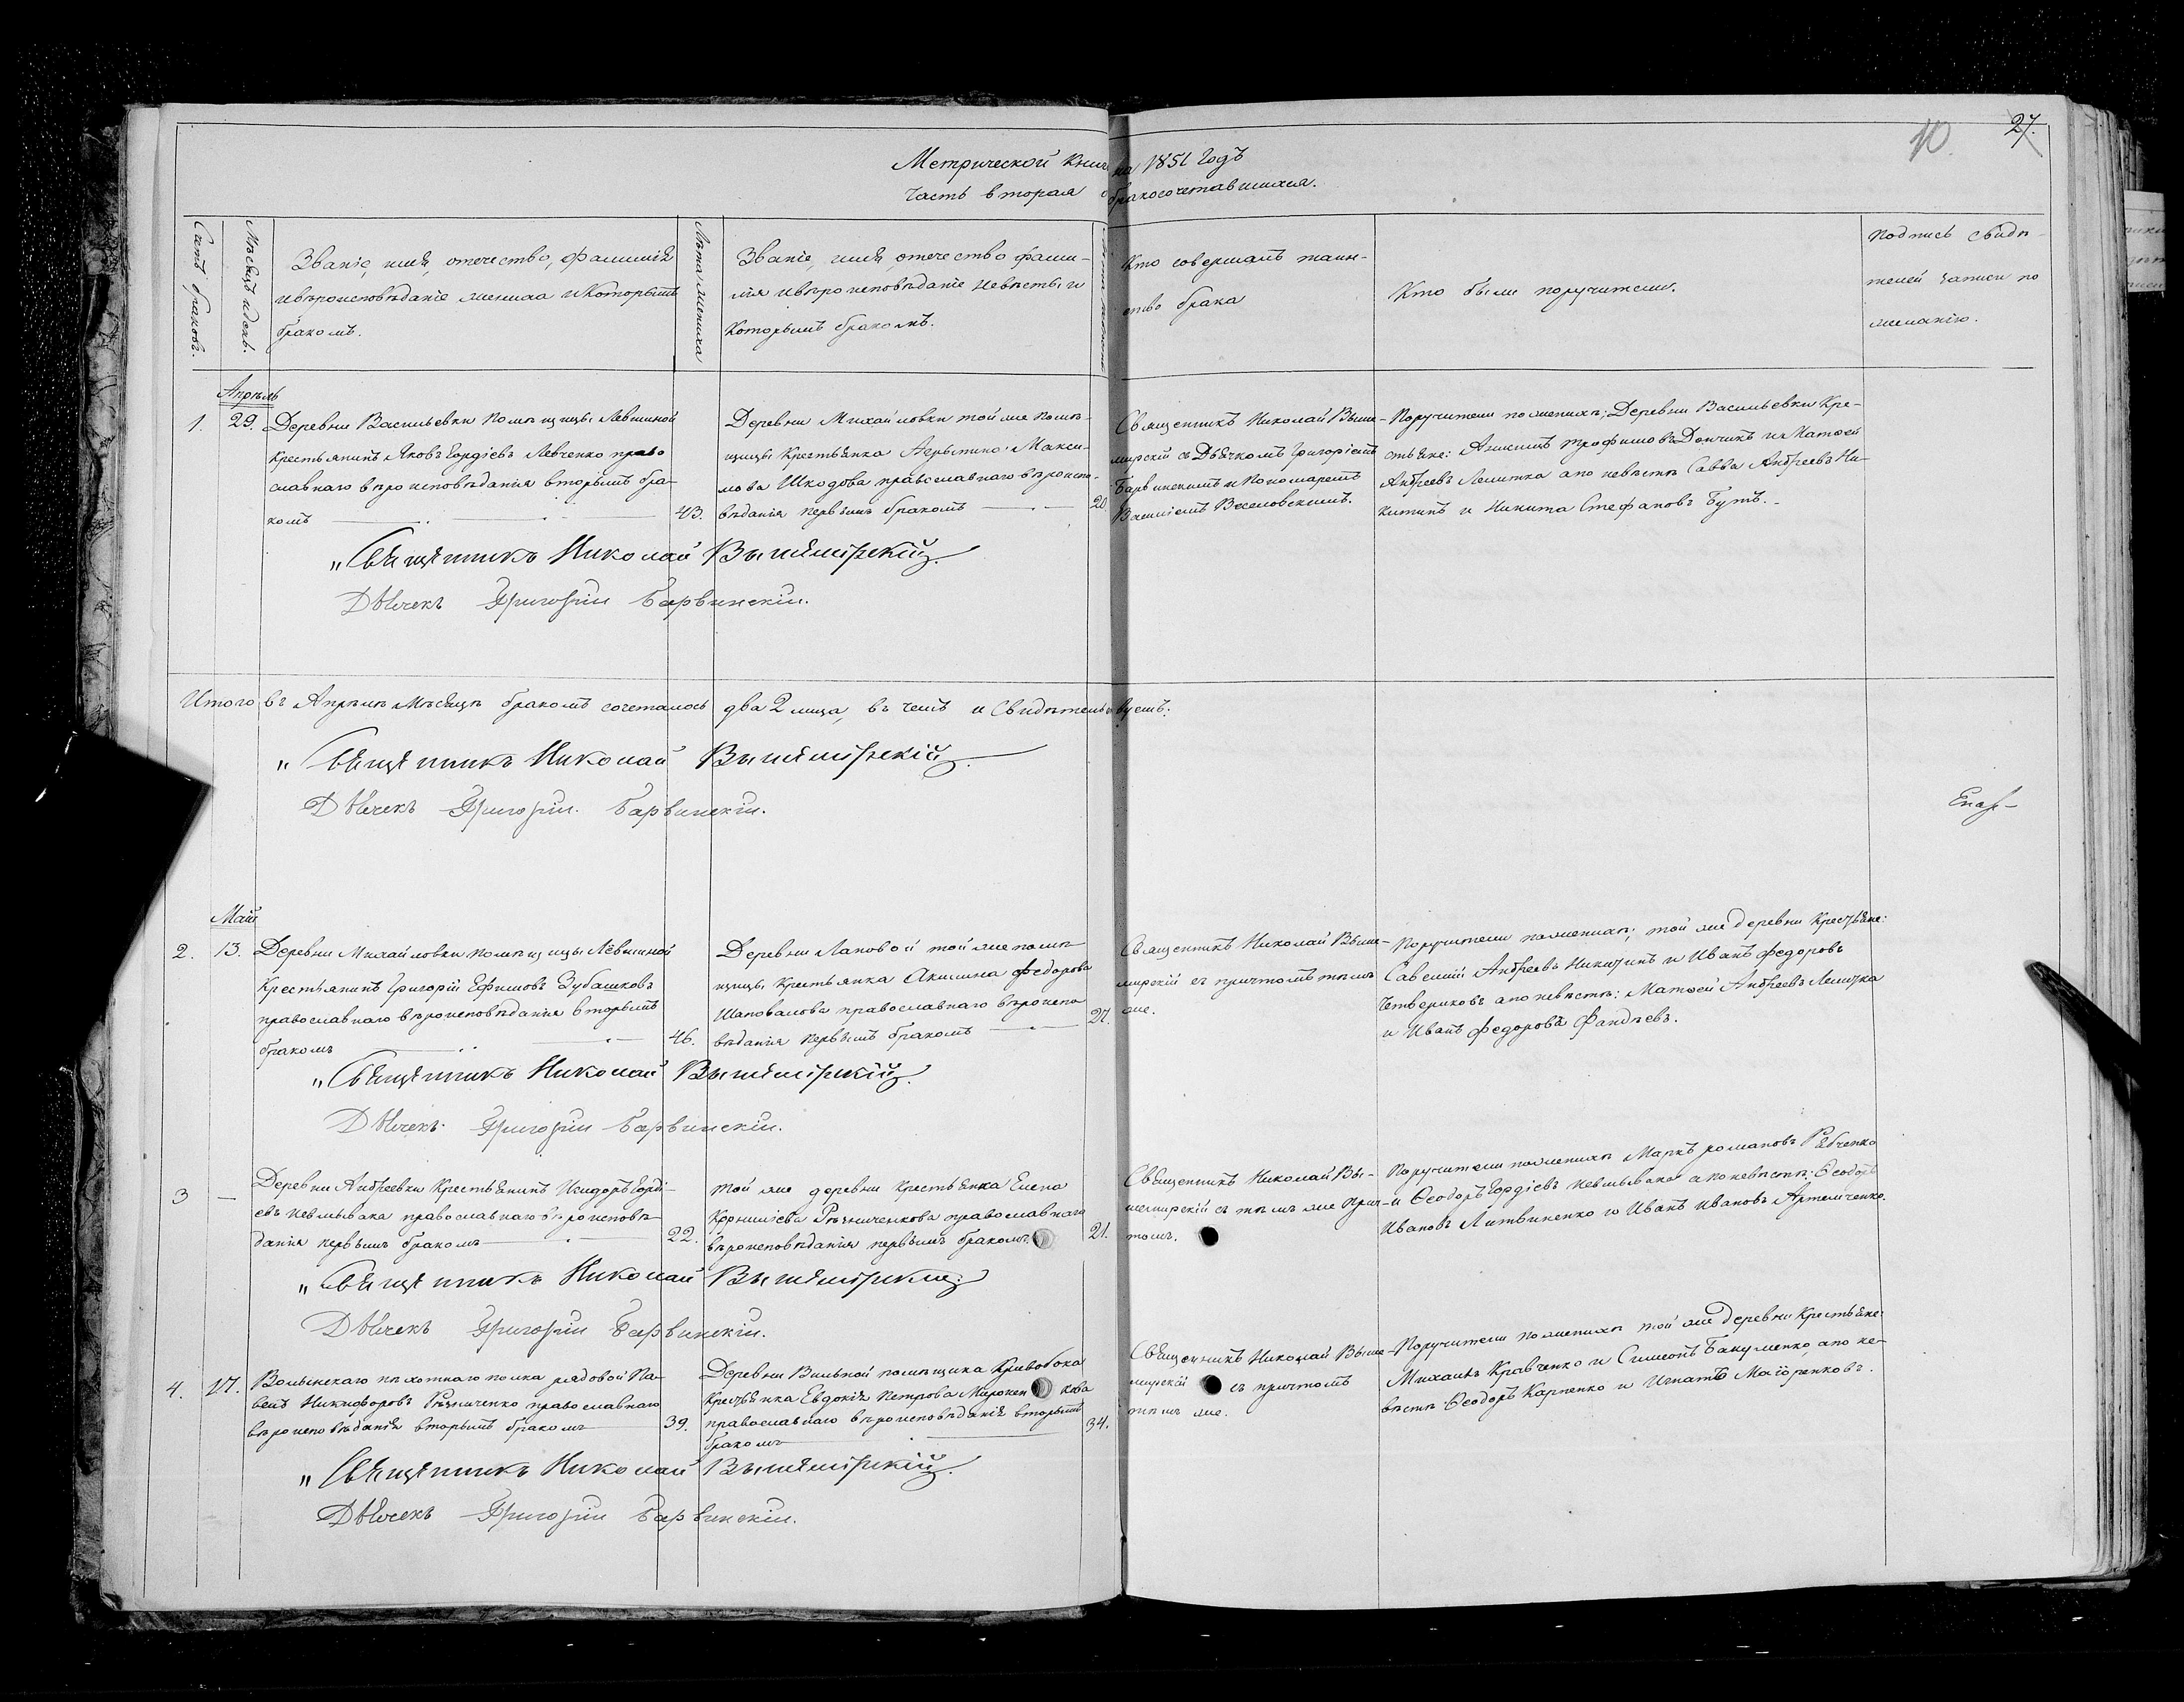 10. 27.
Метрической книги на 1851 годъ
Часть вторая о бракосочетавшихся.
Счетъ браковъ.
Мѣсяцъ и день.
Званіе, имя, отечество, фамилія
и вѣроисповѣданіе жениха и которымъ
бракомъ.
Лѣта жениха
Званіе, имя, отечество фами-
лія и вѣроисповѣданіе невѣсты и
которымъ бракомъ.
Лѣта невѣсты
Кто совершалъ таин-
ство брака
Кто были поручители.
Подпись свидѣ-
телей записи по
желанію.
Апрѣль
1. 29.
Деревни Васильевки помѣщицы Левшиной
крестьянинъ Яковъ Гордіевъ Левченко право
славнаго вѣроисповѣданія вторымъ бра-
комъ
43.
Деревни Михайловки той же помѣ-
щицы крестьянка Макси-
мова Шкодова православнаго вѣроиспо-
вѣданія первымъ бракомъ
20.
Священникъ Николай Выше-
мирскій съ Дьячкомъ Григоріемъ
Барвинскимъ и Пономаремъ
Василіемъ Веселовскимъ.
Поручители по женихѣ: Деревни Васильевки Кре-
стьяне: Анисимъ Трофимовъ Дончикъ и Матѳей
Андреевъ Лешика а по невѣстѣ Савва Андреевъ Ни-
китинъ и Никита Стефановъ Бутъ.
Священникъ Николай Вышемірскій.
Дьячекъ Григорій Барвинскій.
Итого въ Апрѣлѣ мѣсяцѣ бракомъ сочеталось два 2 лица, въ чемъ и свидѣтельствуемъ:
Священникъ Николай Вышемірскій.
Дьячекъ Григорій Барвинскій.
Епар-
Май
2. 13.
Деревни Михайловки помѣщицы Лёвшиной
крестьянинъ Григорій Ефимовъ Зубашковъ
православнаго вѣроисповѣданія вторымъ
бракомъ
46.
Деревни Лановой той же помѣ-
щицы крестьянка Акилина Федорова
Шаповалова православнаго вѣроиспо
вѣданія первымъ бракомъ
27.
Священникъ Николай Выше-
мирскій съ причтомъ тѣмъ
же.
Поручители по женихѣ; той же деревни крестьяне:
Савелій Андреевъ Никитинъ и Иванъ Федоровъ
Четвериковъ а по невѣстѣ: Матѳей Андреевъ Лешика
и Иванъ Федоровъ Фандѣевъ.
Священникъ Николай Вышемірскій.
Дьячекъ Григорій Барвинскій.
3 —
Деревни Андреевки крестьянинъ Исидоръ Горді-
евъ Невмывака православнаго вѣроисповѣ-
данія первымъ бракомъ
22.
Той же деревни крестьянка Елена
Корниліева Рѣзниченкова православнаго
вѣроисповѣданія первымъ бракомъ.
21.
Священникъ Николай Вы-
шемирскій съ тѣмъ же прич-
томъ.
Поручители по женихѣ Маркъ Романовъ Рябченко
и Ѳеодоръ Гордіевъ Невмывака а по невѣстѣ: Ѳеодоръ
Ивановъ Литвиненко и Иванъ Ивановъ Артемченко.
Священникъ Николай Вышемірскій.
Дьячекъ Григорій Барвинскій.
4. 27.
Волынскаго пѣхотнаго полка рядовой Па-
велъ Никифоровъ Рѣзниченко православнаго
вѣроисповѣданія вторымъ бракомъ
39.
Деревни Вильной помѣщика Кривобока
крестьянка Евдокія Петрова Миронен кова
православнаго вѣроисповѣданія вторымъ
бракомъ
34.
Священникъ Николай Выше-
мирскій съ причтомъ
тѣмъ же.
Поручители по женихѣ той же деревни крестьяне:
Михаилъ Кравченко и Симеонъ Бакуменко, а по не-
вѣстѣ: Ѳеодоръ Карпенко и Игнатъ Маіоренковъ.
Священникъ Николай Вышемірскій.
Дьячекъ Григорій Барвинскій.